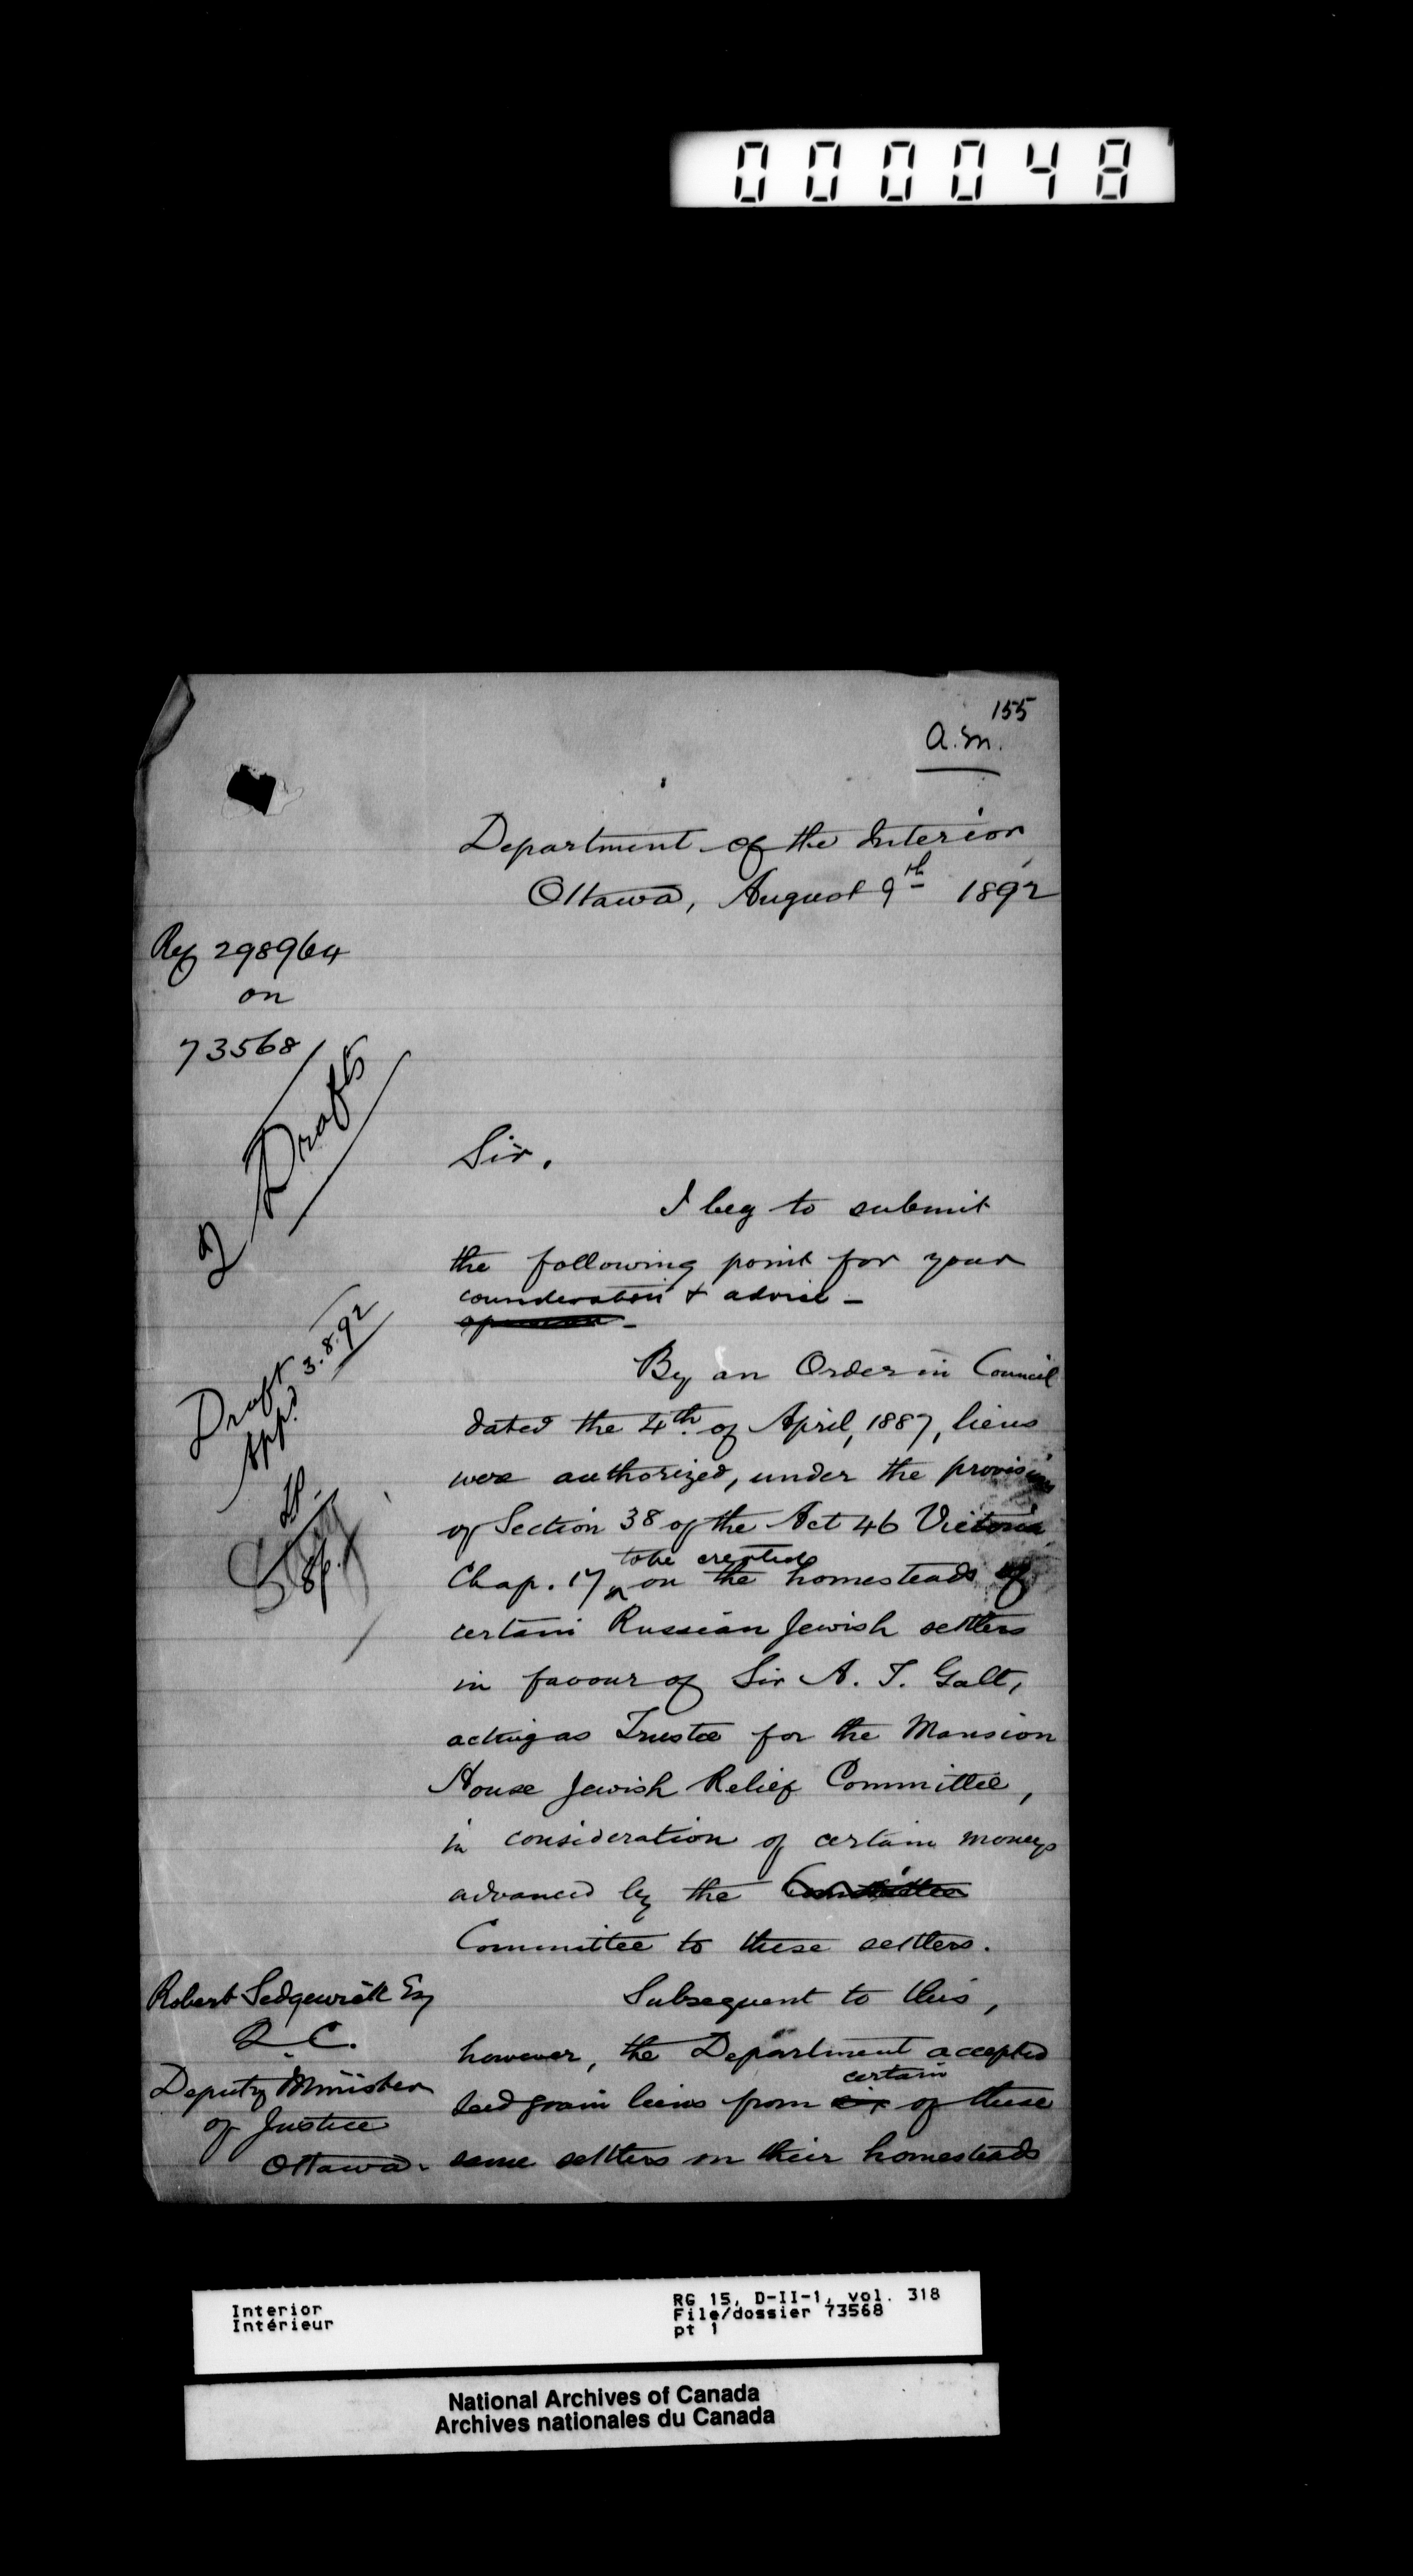 000048
155
a.m.
Department of the Interior
Ottawa, August 9th 1892
Ref 298964
on
73568
2 Drafts
Sir,
I beg to submit
the following point for your
consideration & advice -
opinion -
Draft 3.8.92
App'd
By an Order in Council
dated the 4th of April, 1887, liens
were authorized, under the provisions
of Section 38 of the Act 46 Victoria
to be created
Chap. 17 on the homesteads of
certain Russian Jewish settlers
in favour of Sir A. T. Galt,
acting as Trustee for the Mansion
House Jewish Relief Committee,
in consideration of certain moneys
advanced by the Committee
Committee to these settlers.
Subsequent to this,
however, the Department accepted
certain
seed grain liens from six of these
same settlers on their homesteads
Robert Sedgewick Esq
Q.C.
Deputy Minister
of Justice
Ottawa.
Interior
Intérieur
RG 15, D-II-1, vol. 318
File/dossier 73568
pt 1
National Archives of Canada
Archives nationales du Canada